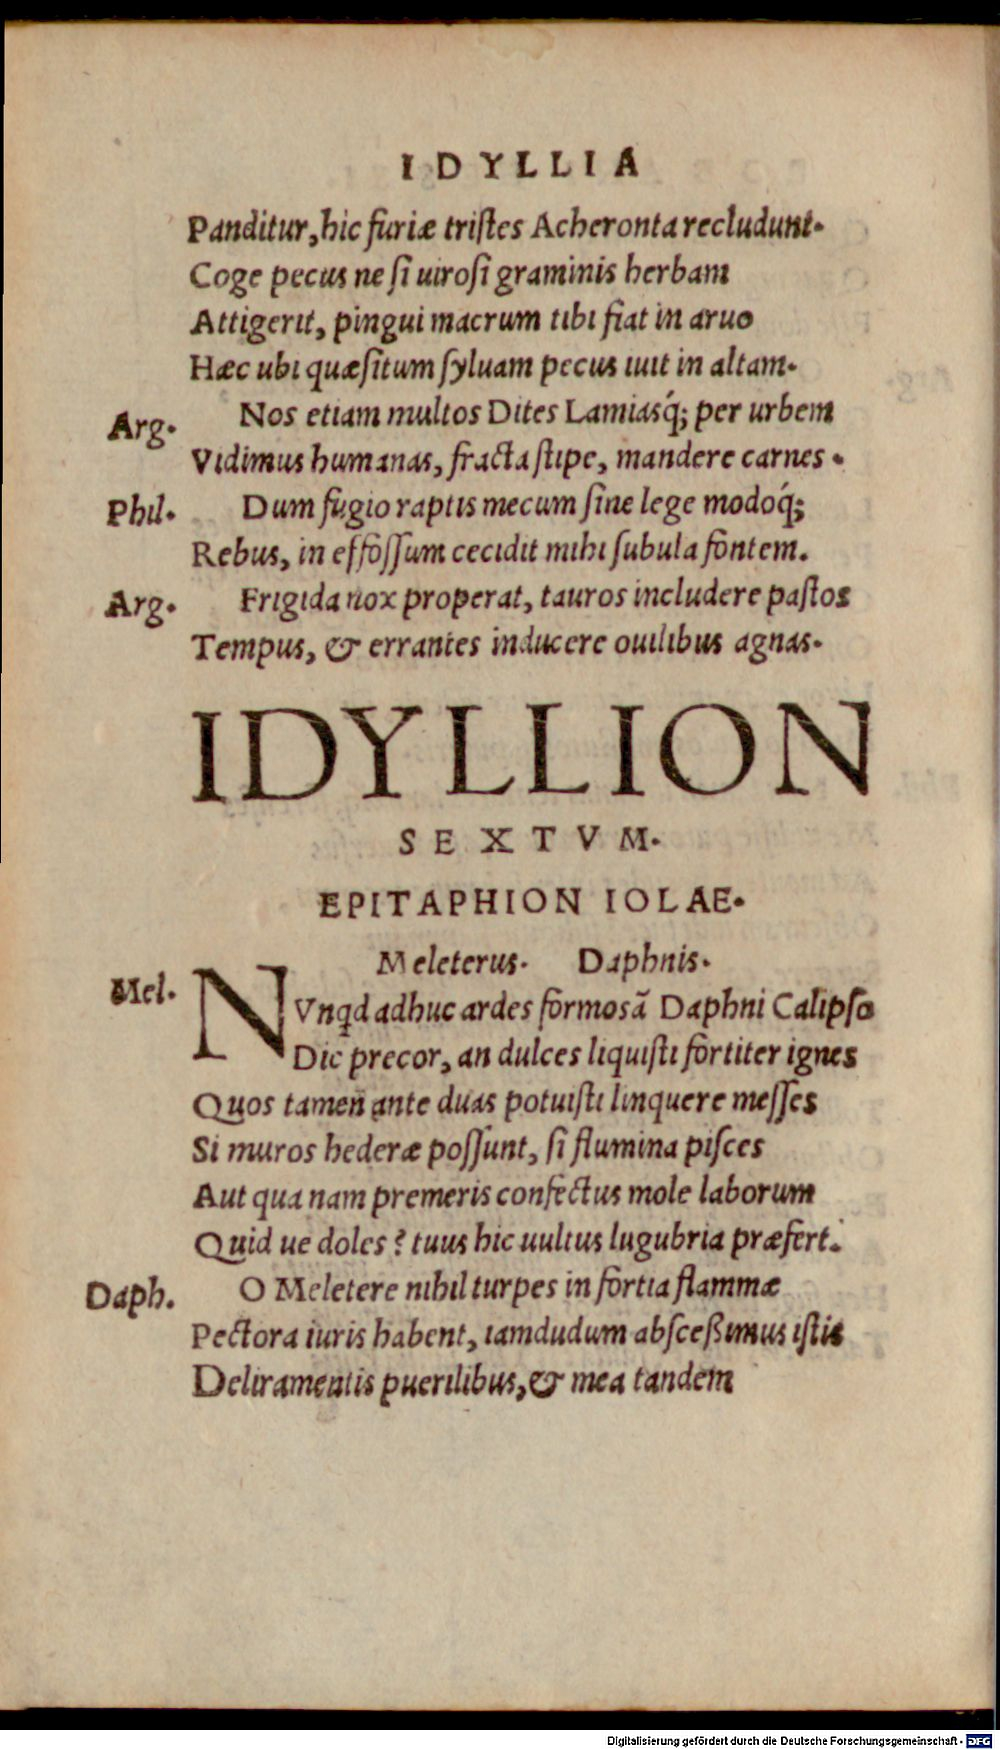 IDYLLIA
Panditur, hic furiæ tristes Acheronta recludunt.
Coge pecus ne si uirosi graminis herbam
Attigerit, pingui macrum tibi fiat in aruo
Hæc ubi quæsitum syluam pecus iuit in altam.
Arg. Nos etiam multos Dites Lamiasq́; per urbem
Vidimus humanas, fracta stipe, mandere carnes.
Phil. Dum fugio raptis mecum sine lege modoq́;
Rebus, in effossum cecidit mihi subula fontem.
Arg. Frigida nox properat, tauros includere pastos
Tempus, & errantes inducere ouilibus agnas.
IDYLLION
SEXTVM.
EPITAPHION IOLAE.
Meleterus. Daphnis.
Mel. NVnqd adhuc ardes formosã Daphni Calipso
Dic precor, an dulces liquisti fortiter ignes
Quos tamen ante duas potuisti linquere messes
Si muros hederæ possunt, si flumina pisces
Aut qua nam premeris confectus mole laborum
Quid ue doles? tuus hic uultus lugubria præfert.
Daph. O Meletere nihil turpes in fortia flammæ
Pectora iuris habent, iamdudum absceßimus istis
Deliramentis puerilibus, & mea tandem
Digitalisierung gefördert durch die Deutsche Forschungsgemeinschaft - DFG